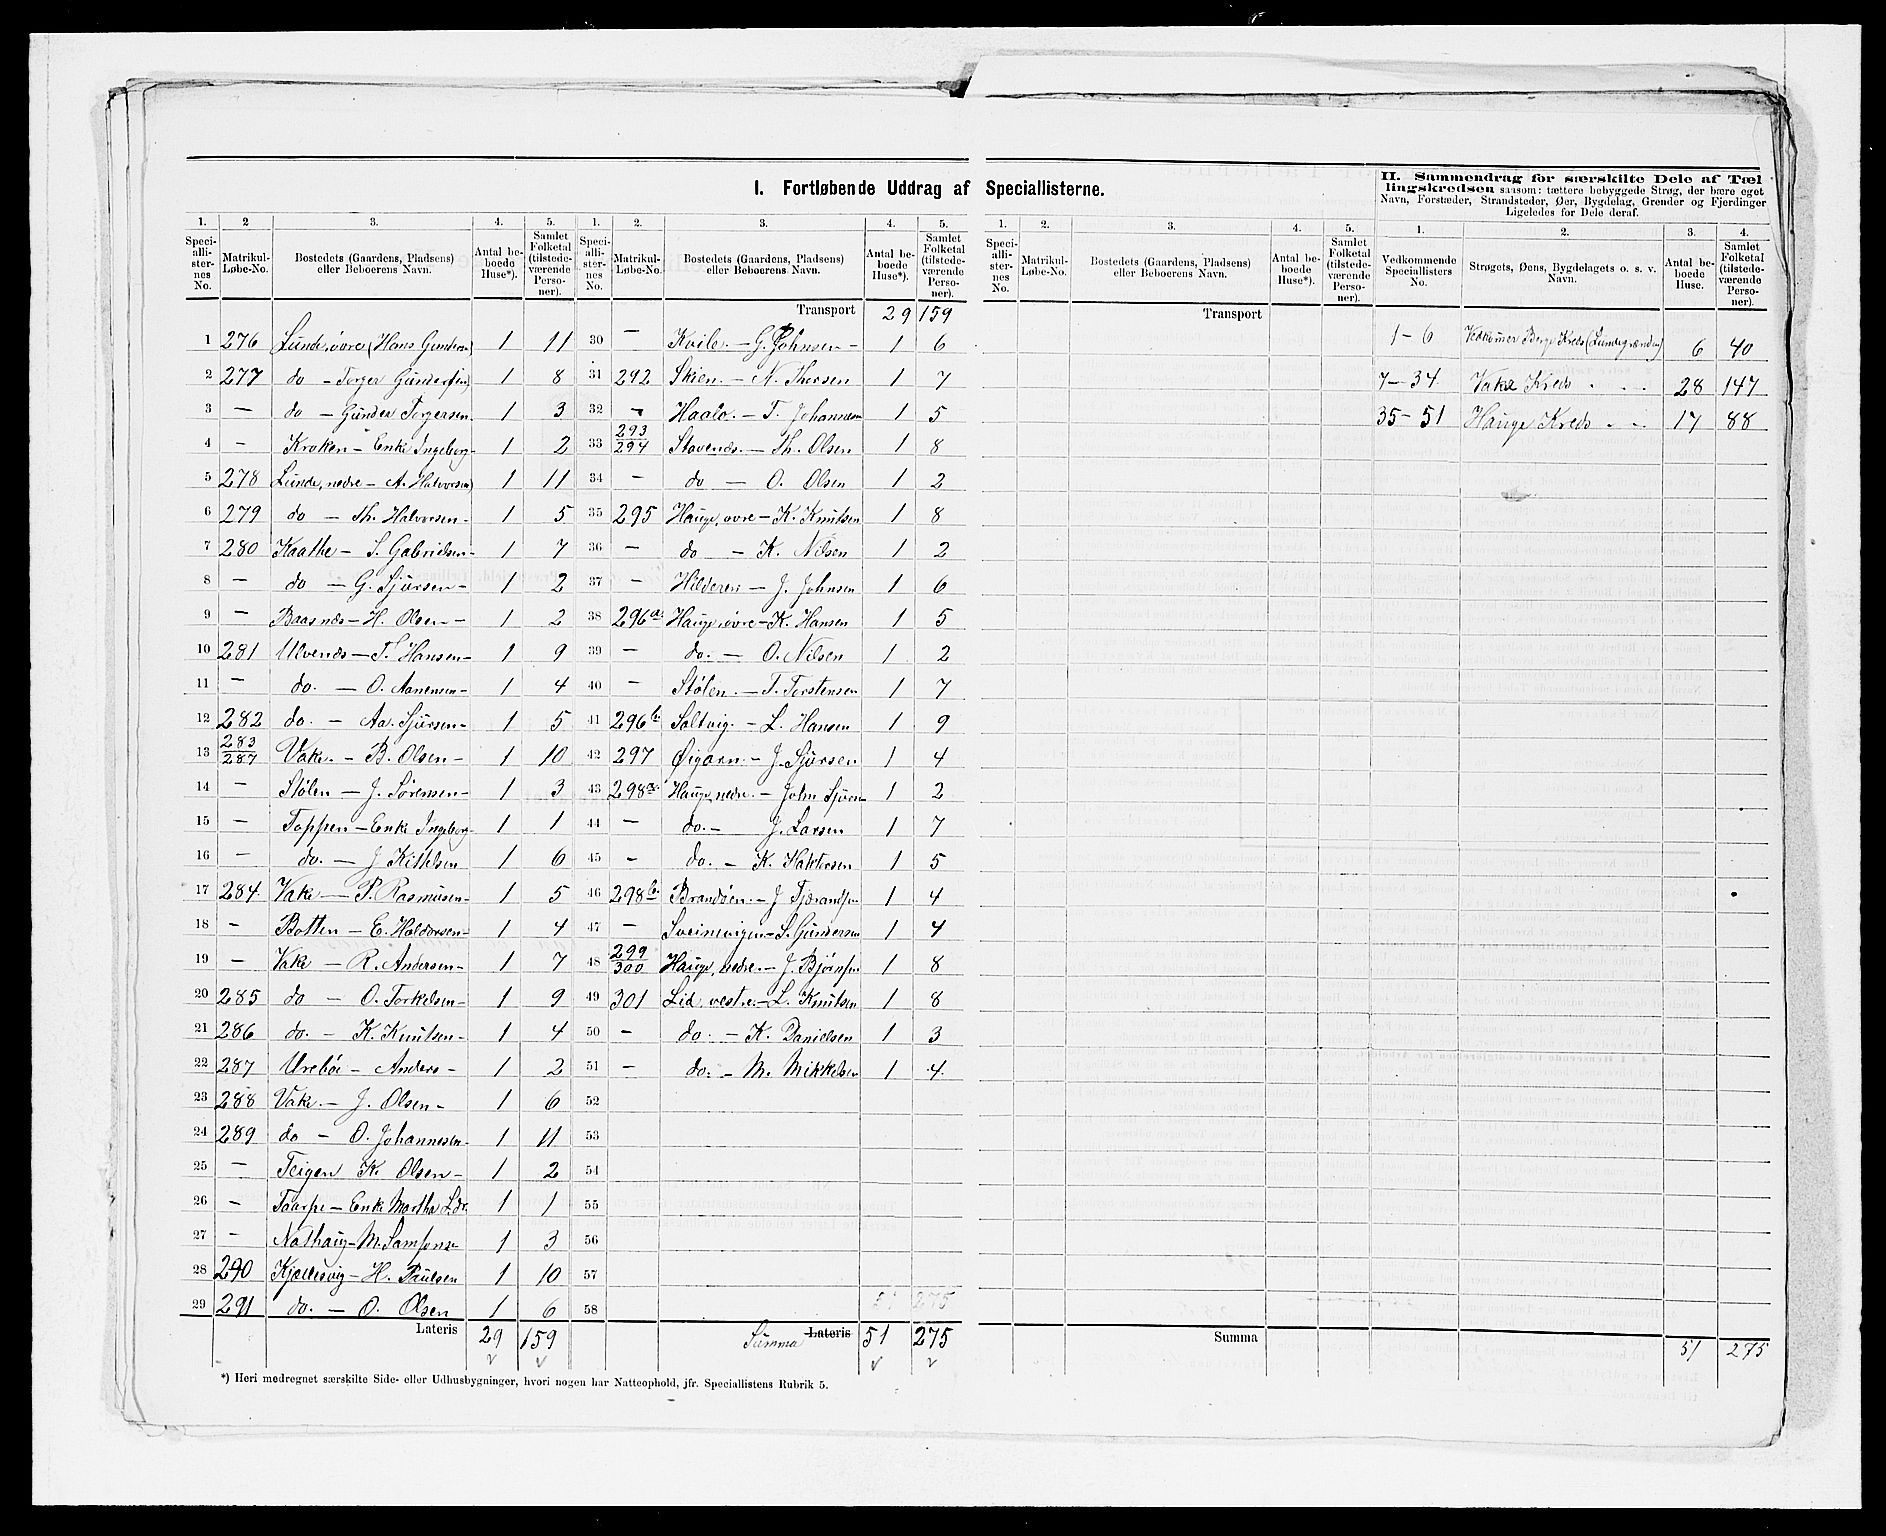 I. Fortløbende Uddrag af Speciallisterne.
II. Sammendrag for særskilte Dele af Tæl
lingskredsen saasom: tættere bebyggede Strøg, der bære eget
Navn, Forstæder, Strandsteder, Øer, Bygdelag, Grender og Fjerdinger
Ligeledes for Dele deraf.
1. 2 3. 4. 5. 1. 2. 3. 4. 5. 1. 2. 3. 4. 5. 1. 2. 3. 4.
Speciallisternes No. Matrikul-Løbe-No. Bostedets (Gaardens, Pladsens) eller Beboerens Navn. Antal beboede Huse*). Samlet Folketal (tilstedeværende Personer).
Speciallisternes No. Matrikul-Løbe-No. Bostedets (Gaardens, Pladsens) eller Beboerens Navn. Antal beboede Huse*). Samlet Folketal (tilstedeværende Personer).
Speciallisternes No. Matrikul-Løbe-No. Bostedets (Gaardens, Pladsens) eller Beboerens Navn. Antal beboede Huse*). Samlet Folketal (tilstedeværende Personer).
Vedkommende Speciallisters No. Strøgets, Øens, Bygdelagets o. s. v. Navn. Antal beboede Huse. Samlet Folketal (tilstedeværende Personer).
1 276 Lunde, övre (Hans Gunders) 1 11
2 277 do - Torger Gundersen) 1 8
3 — do — Gunder Torgersen 1 3
4 - Kroken - Enke Ingeborg - 1 2
5 278 Lunde, nedre - A. Halvorsen) 1 11
6 279 do - Th. Halvorsen - 1 5
7 280 Kaathe - S. Gabrielsen - 1 7
8 — do — G. Sjursen - 1 2
9 — Baasnæs - H. Olsen - 1 2
10 281 Ulvenæs - T. Hansen - 1 9
11 — do. — O. Aanensen - 1 4
12 282 do. - Aa. Sjursen - 1 5
13 283/287 Vake. - B. Olsen - 1 10
14 — Stølen - J. Sörensen - 1 3
15 — Toppen - Enke Ingeborg - 1 1
16 — do. — J. Kittelsen 1 6
17 284 Vake — P. Rasmusen - 1 5
18 - Botten - E. Haldorsen - 1 4
19 - Vake - R. Andersen - 1 7
20 285 do - O. Torkelsen - 1 9
21 286 do. - K. Knutsen - 1 4
22 287 Ureböe - Anders - 1 2
23 288 Vake. - J. Olsen - 1 6
24 289 do - O. Johannesen - 1 11
25 — Teigen K. Olsen - 1 2
26 - Taarpe - Enke Martha L.dr. 1 1
27 - Nathaug - M. Samsons 1 3
28 290 Kjællesvig - H. Paulsen 1 10
29 291 do. — O. Olsen 1 6
Lateris 29 159
Transport 29 159
30 — Kvile. - G. Johnsen - 1 6
31 292 Skien. - N. Thorsen 1 7
32 - Haalo. - T. Johannesen 1 5
33 293/294 Stovenæs. - Th. Olsen 1 8
34 — do — O. Olsen 1 2
35 295 Hauge, övre - K. Knutsen 1 8
36 — do - K. Nilsen 1 2
37 — Hilderen - J. Johnsen 1 6
38 296a Hauge, övre - K. Hansen 1 5
39 — do. — O. Nilsen 1 2
40 — Stölen. - T. Torstensen 1 7
41 296b Saltvig. - L. Hansen 1 9
42 297 Øigarn. - J. Sjursen 1 4
43 298a Hauge, nedre. - John Sjursen 1 2
44 — do. - J. Larsen 1 7
45 - do. - K. Haktorsen 1 5
46 298b Brandöen. - J. Tjærandsen 1 4
47 — Sveinevigen - S. Gundersen 1 4
48 299/300 Hauge, nedre. - J. Bjørnsen 1 8
49 301 Lid, vestre. - L. Knutsen 1 8
50 - do. - K. Danielsen 1 3
51 — do. - M. Mikkelsen 1 4
52
53
54
55
56
57
58 51 275
Summa Lateris 51 275
Transport
Summa
1 - 6 Berge Kreds (Lundegrænden) 6 40
7 - 34 Vake Kreds . . . 28 147
35 - 51 Hauge Kreds . . 17 88
51 275
*) Heri medregnet særskilte Side- eller Udhusbygninger, hvori nogen har Natteophold, jfr. Speciallistens Rubrik 5.